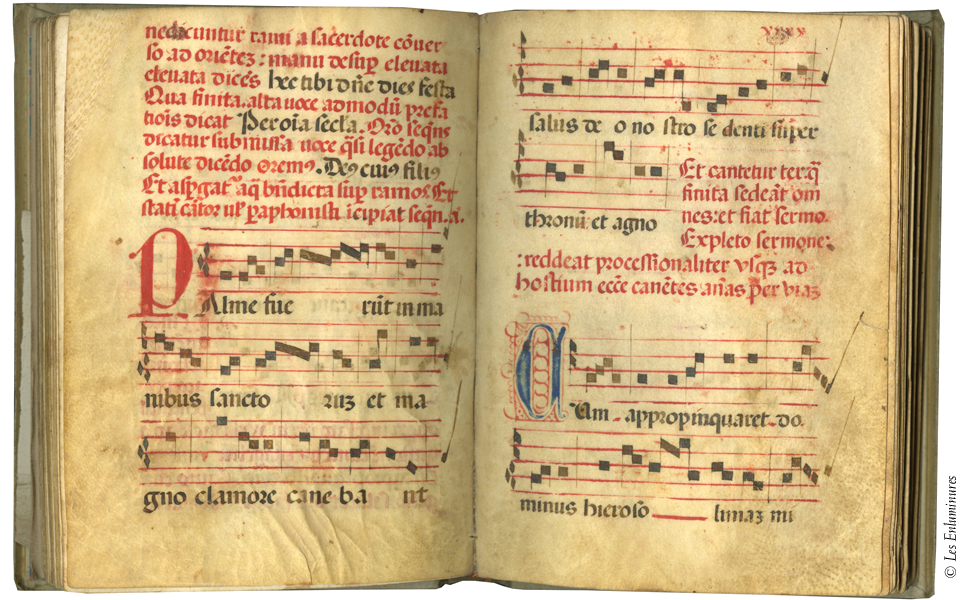 nedicuntur rami a sacerdote cōuer
so ad oriētez : manu desup eleuata
eleuata dicēs hec tibi dn̄e dies festa
Qua finita. alta uoce ad modū prefa
tiōis dicat Per oīa secl̄a. Orō seqn̄s
dicatur submissa uoce q̄si legēdo ab
solute dicēdo oremꝰ. Deꝰ cuiꝰ filiꝰ
Et aspgat aq̄ bn̄dicta sup ramos. Et
statī cātor ul' paraphonisti īcipiat seqn.a.
PAlme fue rūt in ma
nibus sancto ruz et ma
gno clamore cane ba nt
xxxx
salus de o no stro se denti super
thronū et agno
Et cantetur ter. q̄
finita sedeāt om
nes: et fiat sermo.
Expleto sermone:
: reddeat processionaliter vsqz ad
hostium ecc̄e canētes an̄as per uiaz
CUm appropinquaret do
minus hieroso limaz mi
© Les Enluminures